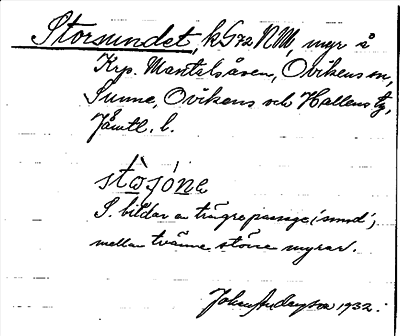 Storsundet, k G72 NM, myr å
Krp. Mantelsåsen, Ovikens sn,
Sunne, Ovikens och Hallens tg,
Jämtl. l.
stòsóne
S. bildar en trängre passage ('sund')
mellan tvänne större myrar.
Johan Anderson 1932.